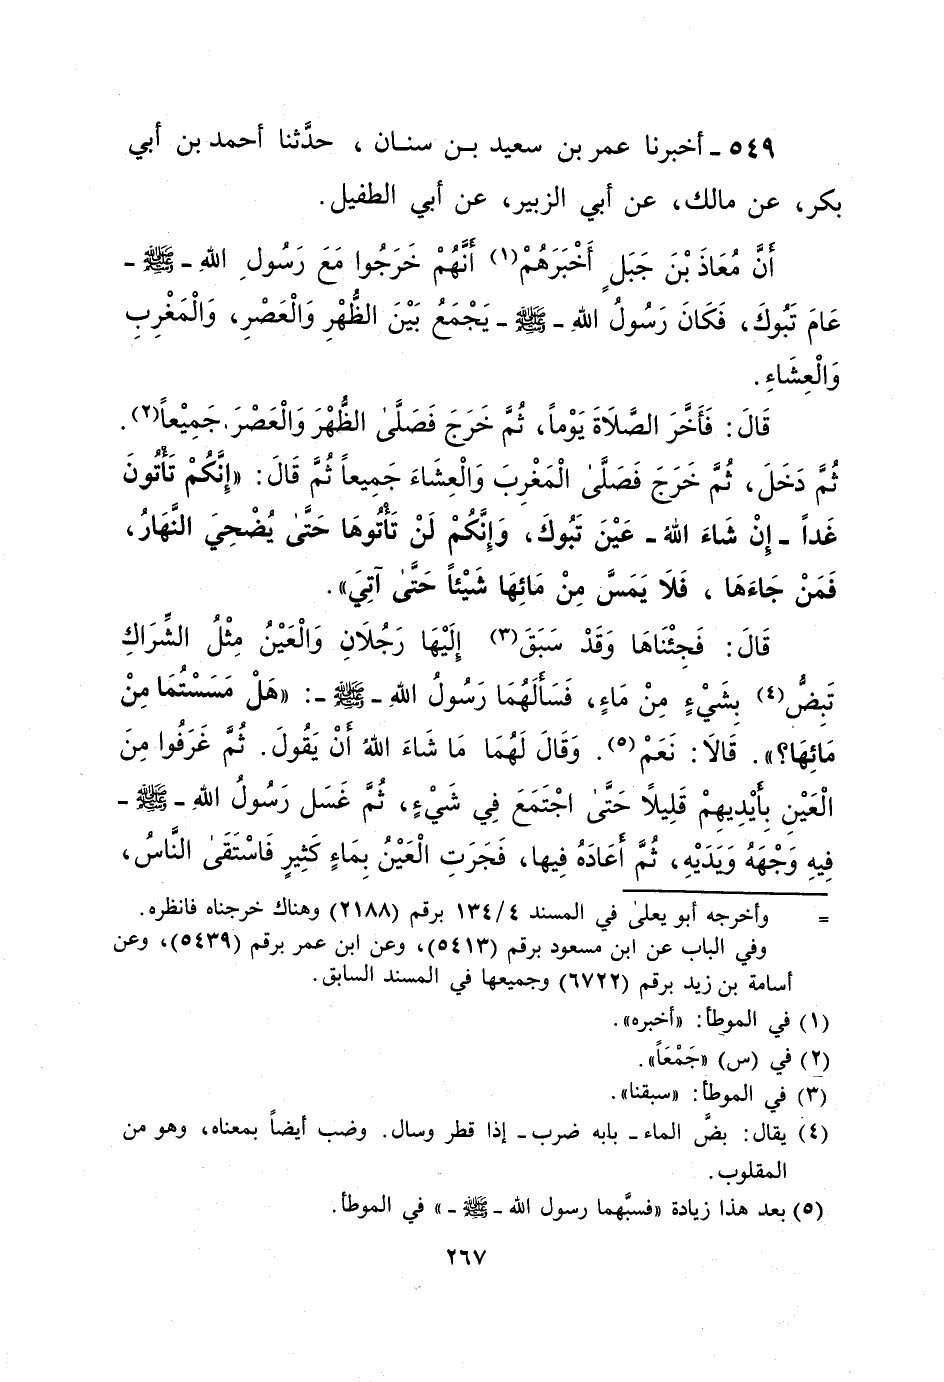 ٥٤٩ - أخبرنا عمر بن سعيد بـن سنـان ، حدَّثنا أحمد بن أبي
بكر، عن مالك، عن أبي الزبير، عن أبي الطفيل.
أَنَّ مُعَاذَ بْنَ جَبَلٍ أَخْبَرَهُمْ(١) أَنَّهُمْ خَرَجُوا مَعَ رَسُولِ اللهِ - ﷺ -
عَامَ تَبُوكَ، فَكَانَ رَسُولُ اللهِ - ﷺ - يَجْمَعُ بَيْنَ الظُّهْرِ وَالْعَصْرِ، وَالْمَغْرِبِ
وَالْعِشَاءِ.
قَالَ: فَأَخَّرَ الصَّلَاةَ يَوْماً، ثُمَّ خَرَجَ فَصَلَّىٰ الظُّهْرَ وَالْعَصْرَ جَمِيْعاً(٢).
ثُمَّ دَخَلَ، ثُمَّ خَرَجَ فَصَلَّىٰ الْمَغْرِبَ وَالْعِشَاءَ جَمِيعاً ثُمَّ قَالَ: «إِنَّكُمْ تَأْتُونَ
غَداً - إِنْ شَاءَ اللهُ - عَيْنَ تَبُوكَ، وَإِنَّكُمْ لَنْ تَأْتُوهَا حَتَّىٰ يُضْحِيَ النَّهَارُ،
فَمَنْ جَاءَهَا ، فَلَا يَمَسَّ مِنْ مَائِهَا شَيْئاً حَتَّىٰ آتِيَ».
قَالَ: فَجِئْنَاهَا وَقَدْ سَبَقَ(٣) إِلَيْهَا رَجُلَانِ وَالْعَيْنُ مِثْلُ الشِّرَاكِ
تَبِضُّ(٤) بِشَيْءٍ مِنْ مَاءٍ، فَسَأَلَهُمَا رَسُولُ اللهِ - ﷺ -: «هَلْ مَسَسْتُمَا مِنْ
مَائِهَا؟». قَالَا: نَعَمْ(٥). وَقَالَ لَهُمَا مَا شَاءَ اللهُ أَنْ يَقُولَ. ثُمَّ غَرَفُوا مِنَ
الْعَيْنِ بِأَيْدِيهِمْ قَلِيلًا حَتَّىٰ اجْتَمَعَ فِي شَيْءٍ، ثُمَّ غَسَل رَسُولُ اللهِ - ﷺ -
فِيهِ وَجْهَهُ وَيَدَيْهِ، ثُمَّ أَعَادَهُ فِيها، فَجَرَتِ الْعَيْنُ بِمَاءٍ كَثِيرٍ فَاسْتَقَىٰ النَّاسُ،
= وأخرجه أبو يعلىٰ في المسند ١٣٤/٤ برقم (٢١٨٨) وهناك خرجناه فانظره.
وفي الباب عن ابن مسعود برقم (٥٤١٣)، وعن ابن عمر برقم (٥٤٣٩)، وعن
أسامة بن زيد برقم (٦٧٢٢) وجميعها في المسند السابق.
(١) في الموطأ: «أخبره».
(٢) في (س) «جَمْعَاً».
(٣) في الموطأ: «سبقنا».
(٤) يقال: بضَّ الماء - بابه ضرب - إذا قطر وسال. وضب أيضاً بمعناه، وهو من
المقلوب.
(٥) بعد هذا زيادة «فسبَّهما رسول الله - ﷺ -» في الموطأ.
٢٦٧